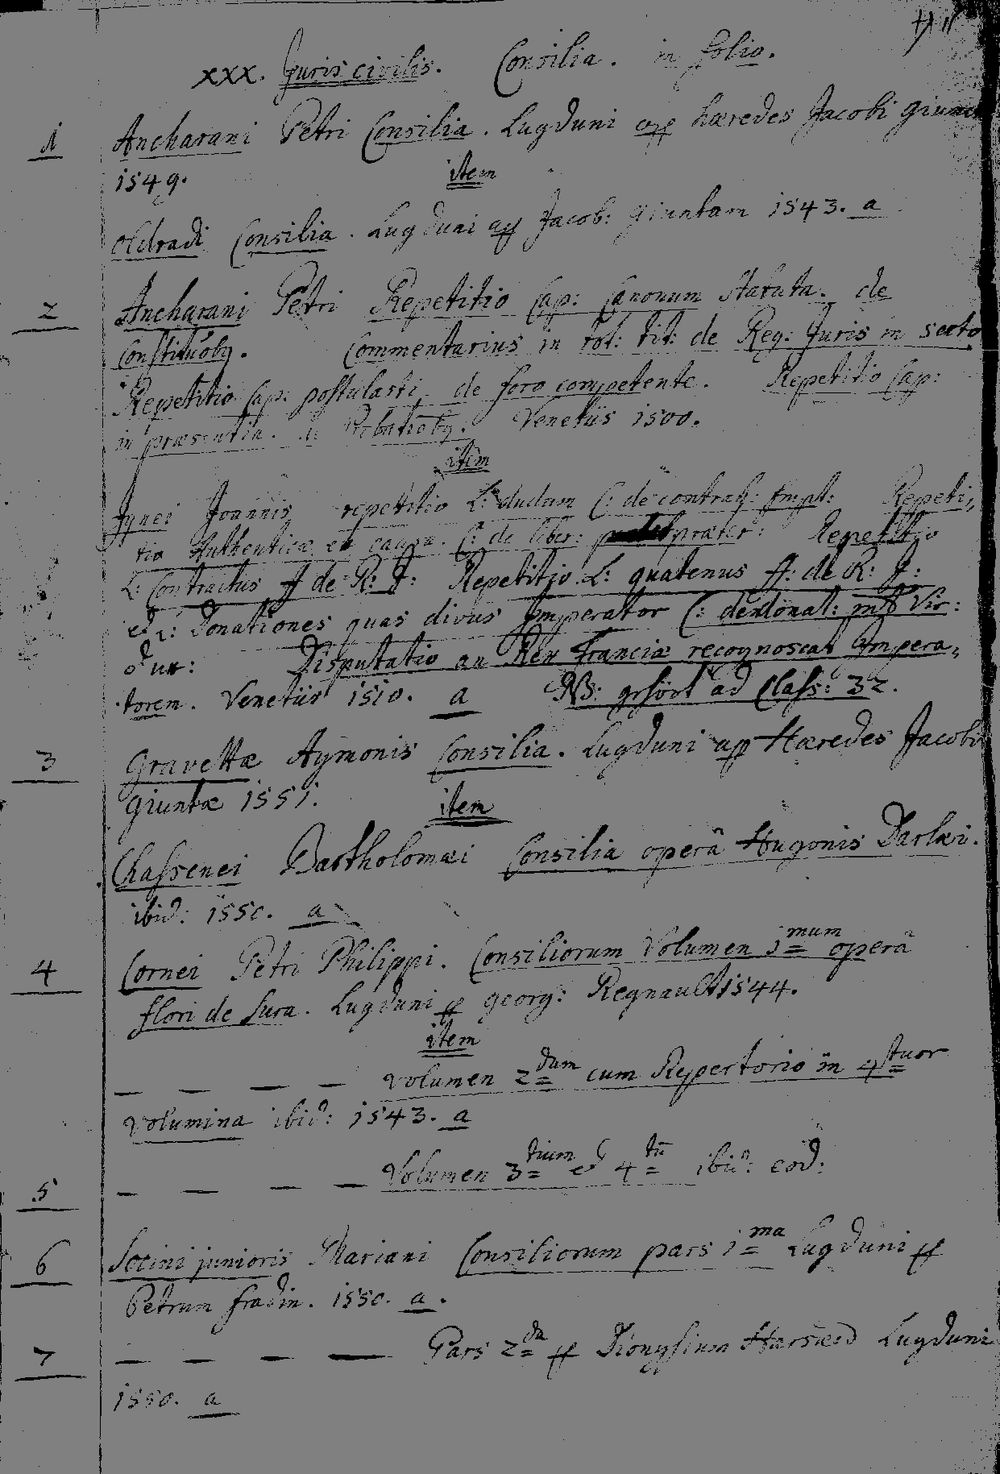 xxx. Juris civilis. Consilia. in folio.
1 Ancharani Petri Consilia. Lugduni app hæredes Jacobi Giunct
1549. item
Oldradi Consilia. Lugduni app Jacob: Giuntam 1543. a
2 Ancharani Petri Repetitio Cap: Canonum Statuta. de
Constitutōbq. Commentarius in tot: tit: de Reg: Juris in sexto
Repetitio Cap: postulasti, de foro competente. Repetitio Cap:
in præsentia. de Probatiōbq. Venetiis 1500.
item
Ignei Joannis repetitio L: dudum C: de contrah: Empt: Repeti,,
tio Authenticæ ex causa. C: de liber: præter: Repetitio
L: Contractus ff de R: J: Repetitio L: quatenus ff: de R: J:
et L: Donationes quas divus Imperator C: de donat: int Vir:
et ux: Disputatio an Rex Franciæ recognoscat Impera,,
torem. Venetiis 1510. a NB: ad Class: 32.
3 Gravettæ Aymonis Consilia. Lugduni app Hæredes Jacobi
Giuntæ 1551. item
Chassenei Bartholomæi Consilia operâ Hugonis Darlæi.
ibid: 1550. a
4 Cornei Petri Philippi. Consiliorum Volumen 1mum operâ
flori de Sura. Lugduni pp georg: Regnault 1544.
item
— — — — Volumen 2dum cum Repertorio in 4tuor
Volumina ibid: 1543. a
5 — — — — Volumen 3tium et 4tū ibid: eod:
6 Socini junioris Mariani Consiliorum pars 1ma Lugduni pp
Petrum fradin. 1550. a.
7 — — — — Pars 2da pp Dionysium Harsæd Lugduni
1550. a